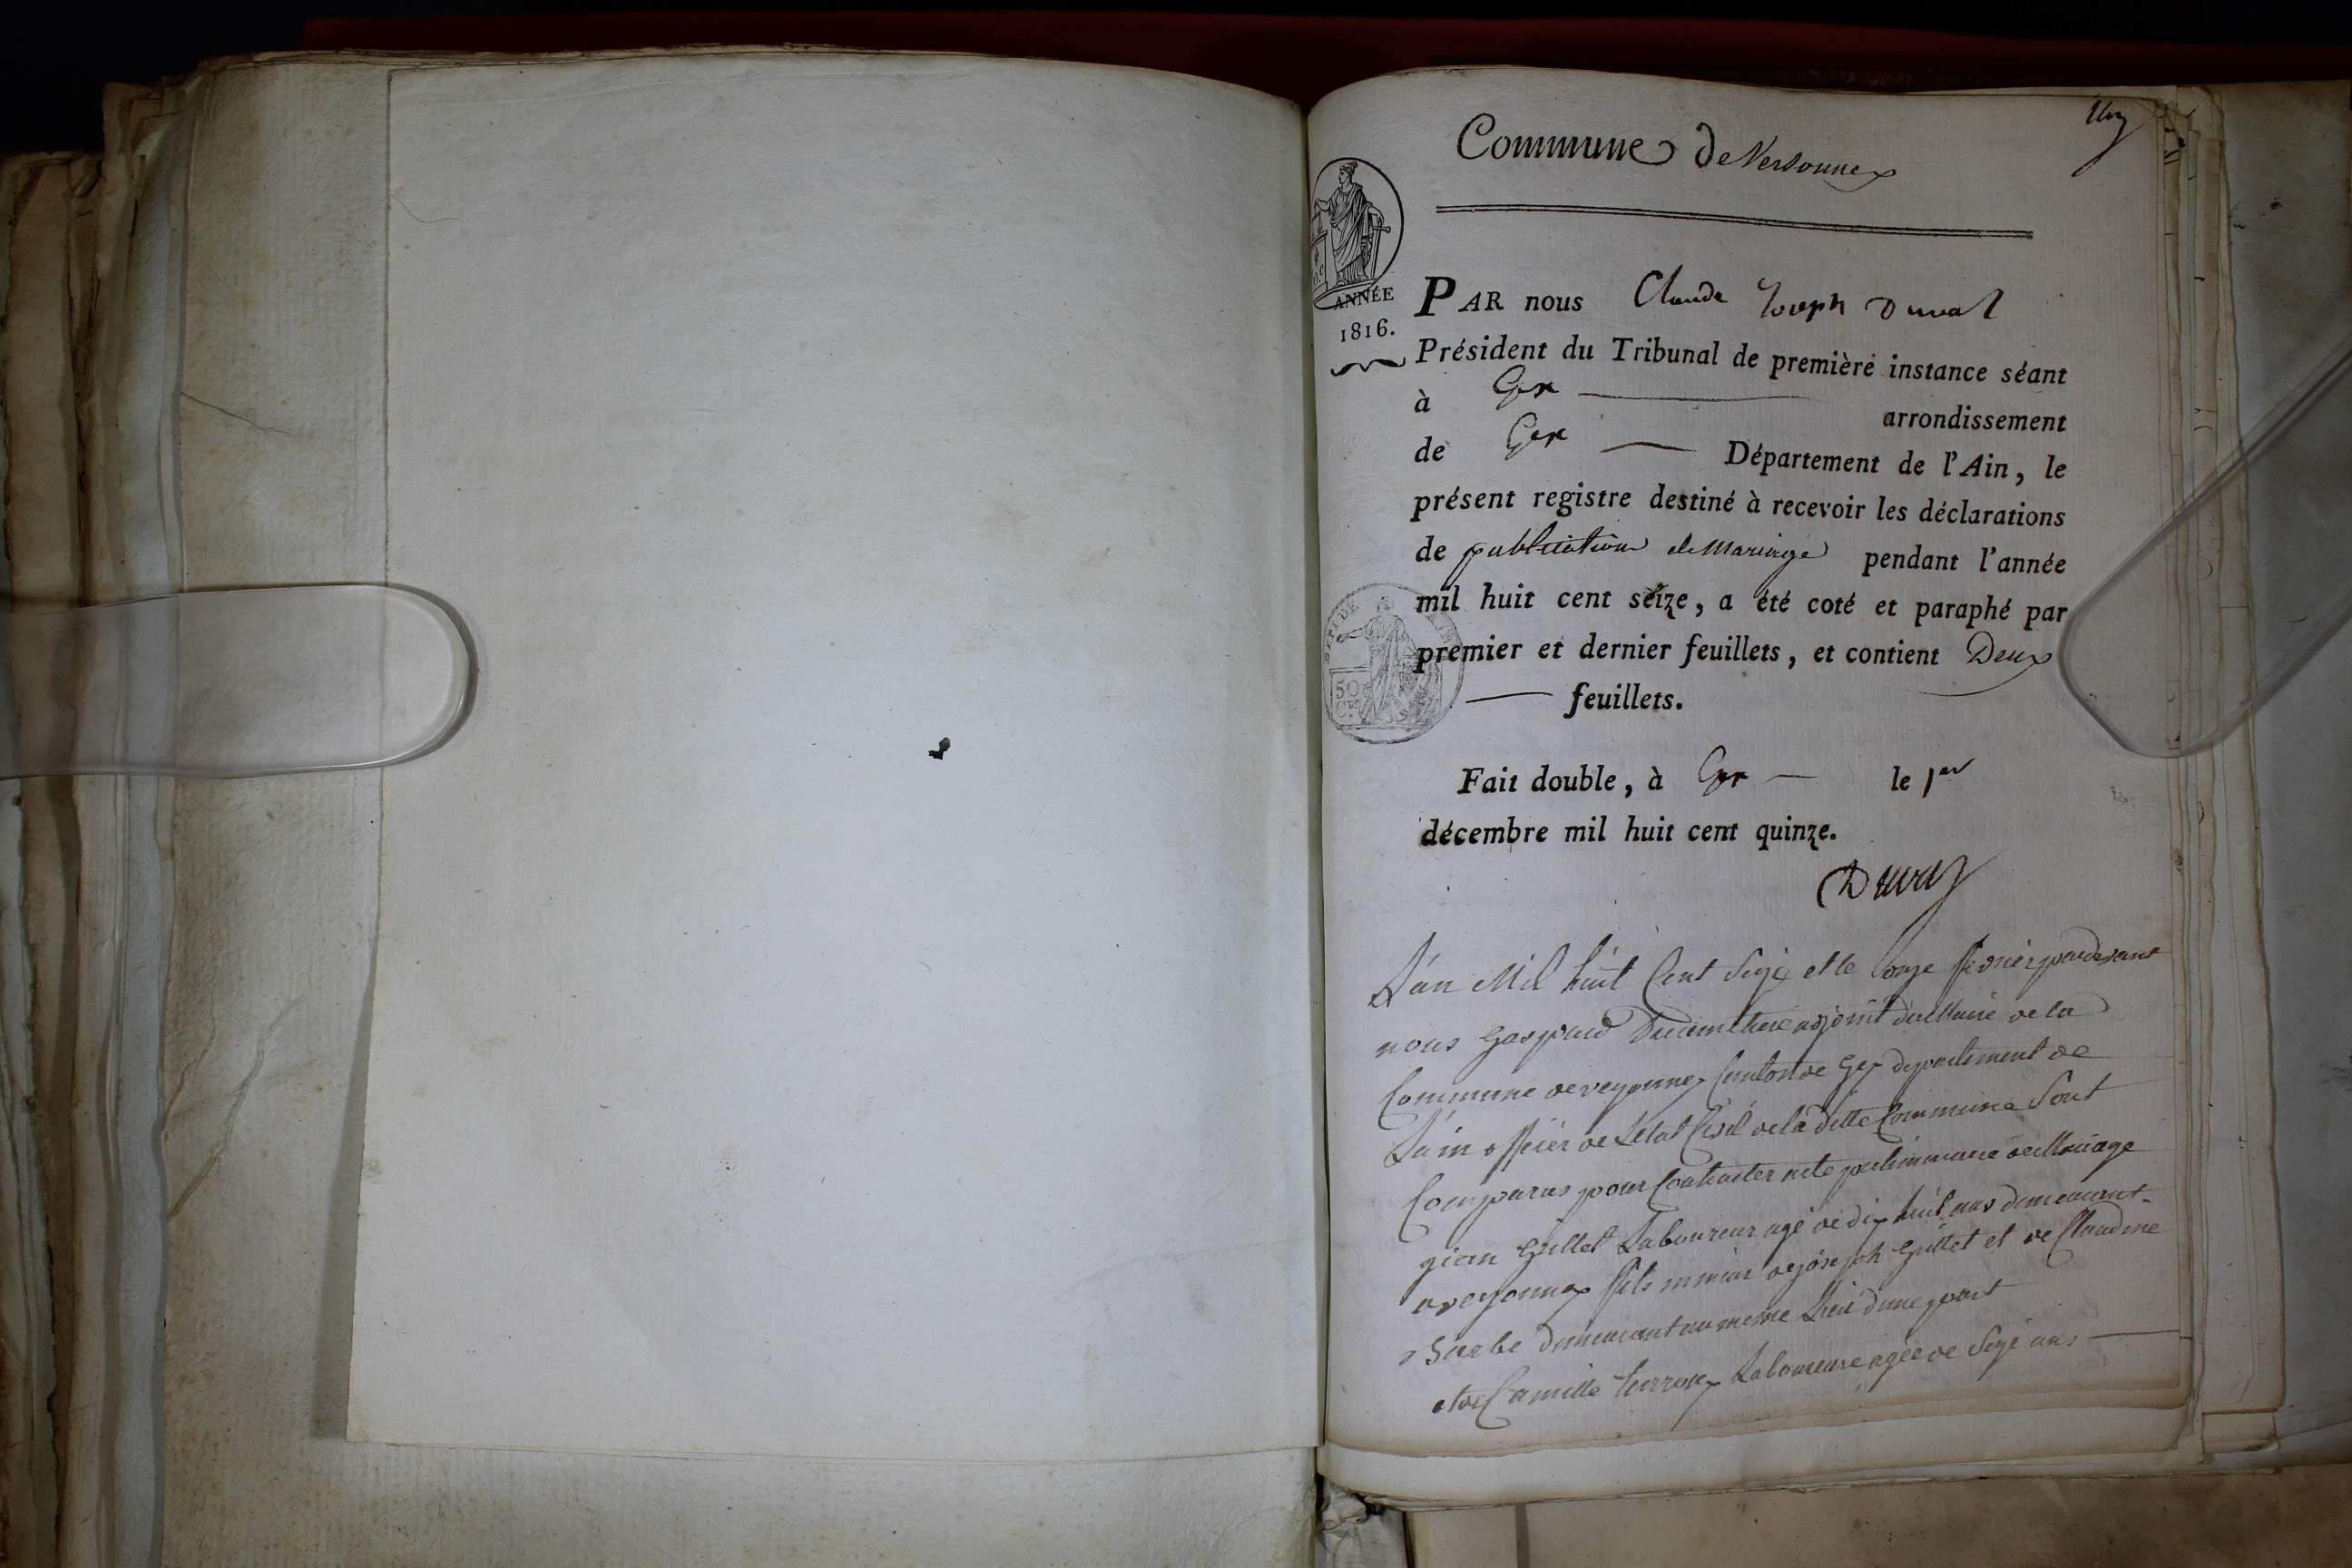 Commune de Versonnex
ANNÉE
1816.
PAR nous Claude Joseph Duval
Président du Tribunal de première instance séant
à Gex arrondissement
de Gex Département de l'Ain, le
présent registre destiné à recevoir les déclarations
de publication de Mariage pendant l'année
mil huit cent seize, a été coté et paraphé par
premier et dernier feuillets, et contient Deux
50
feuillets.
Fait double, à Gex le 1er
décembre mil huit cent quinze.
Duval
L'an Mil huit Cent Seize et le onze fevrier pardevant
nous Gaspard adjoint du Maire de la
Commune de veyonnex Canton de Gex departement de
Lain officier de Létat Civil de la ditte Commune Sont
Comparus pour Contracter acte de Mariage
jean Grillet Laboureur agé de dix huit ans demeurant
a veyonnex fils mineur de joseph Grillet et de Claudine
Barbe demeurant au meme Lieu dune part
et de Camille Laboureuse agée de Seize ans